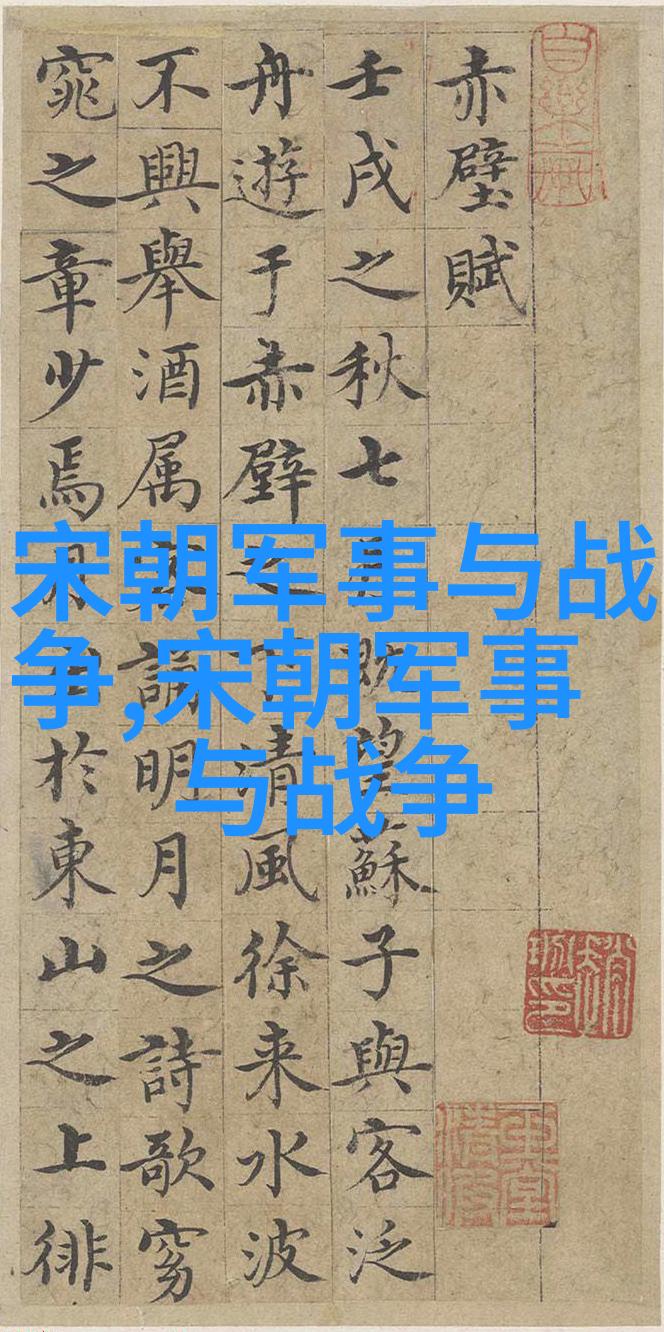 赤壁賦
壬戌之秋七月既望蘇子與客泛
舟遊于赤壁之下清風徐来水波
不興舉酒属客誦明月之詩歌窈
窕之章少焉月出於東山之上徘
宋朝军事与战
争,宋朝军事
与战争